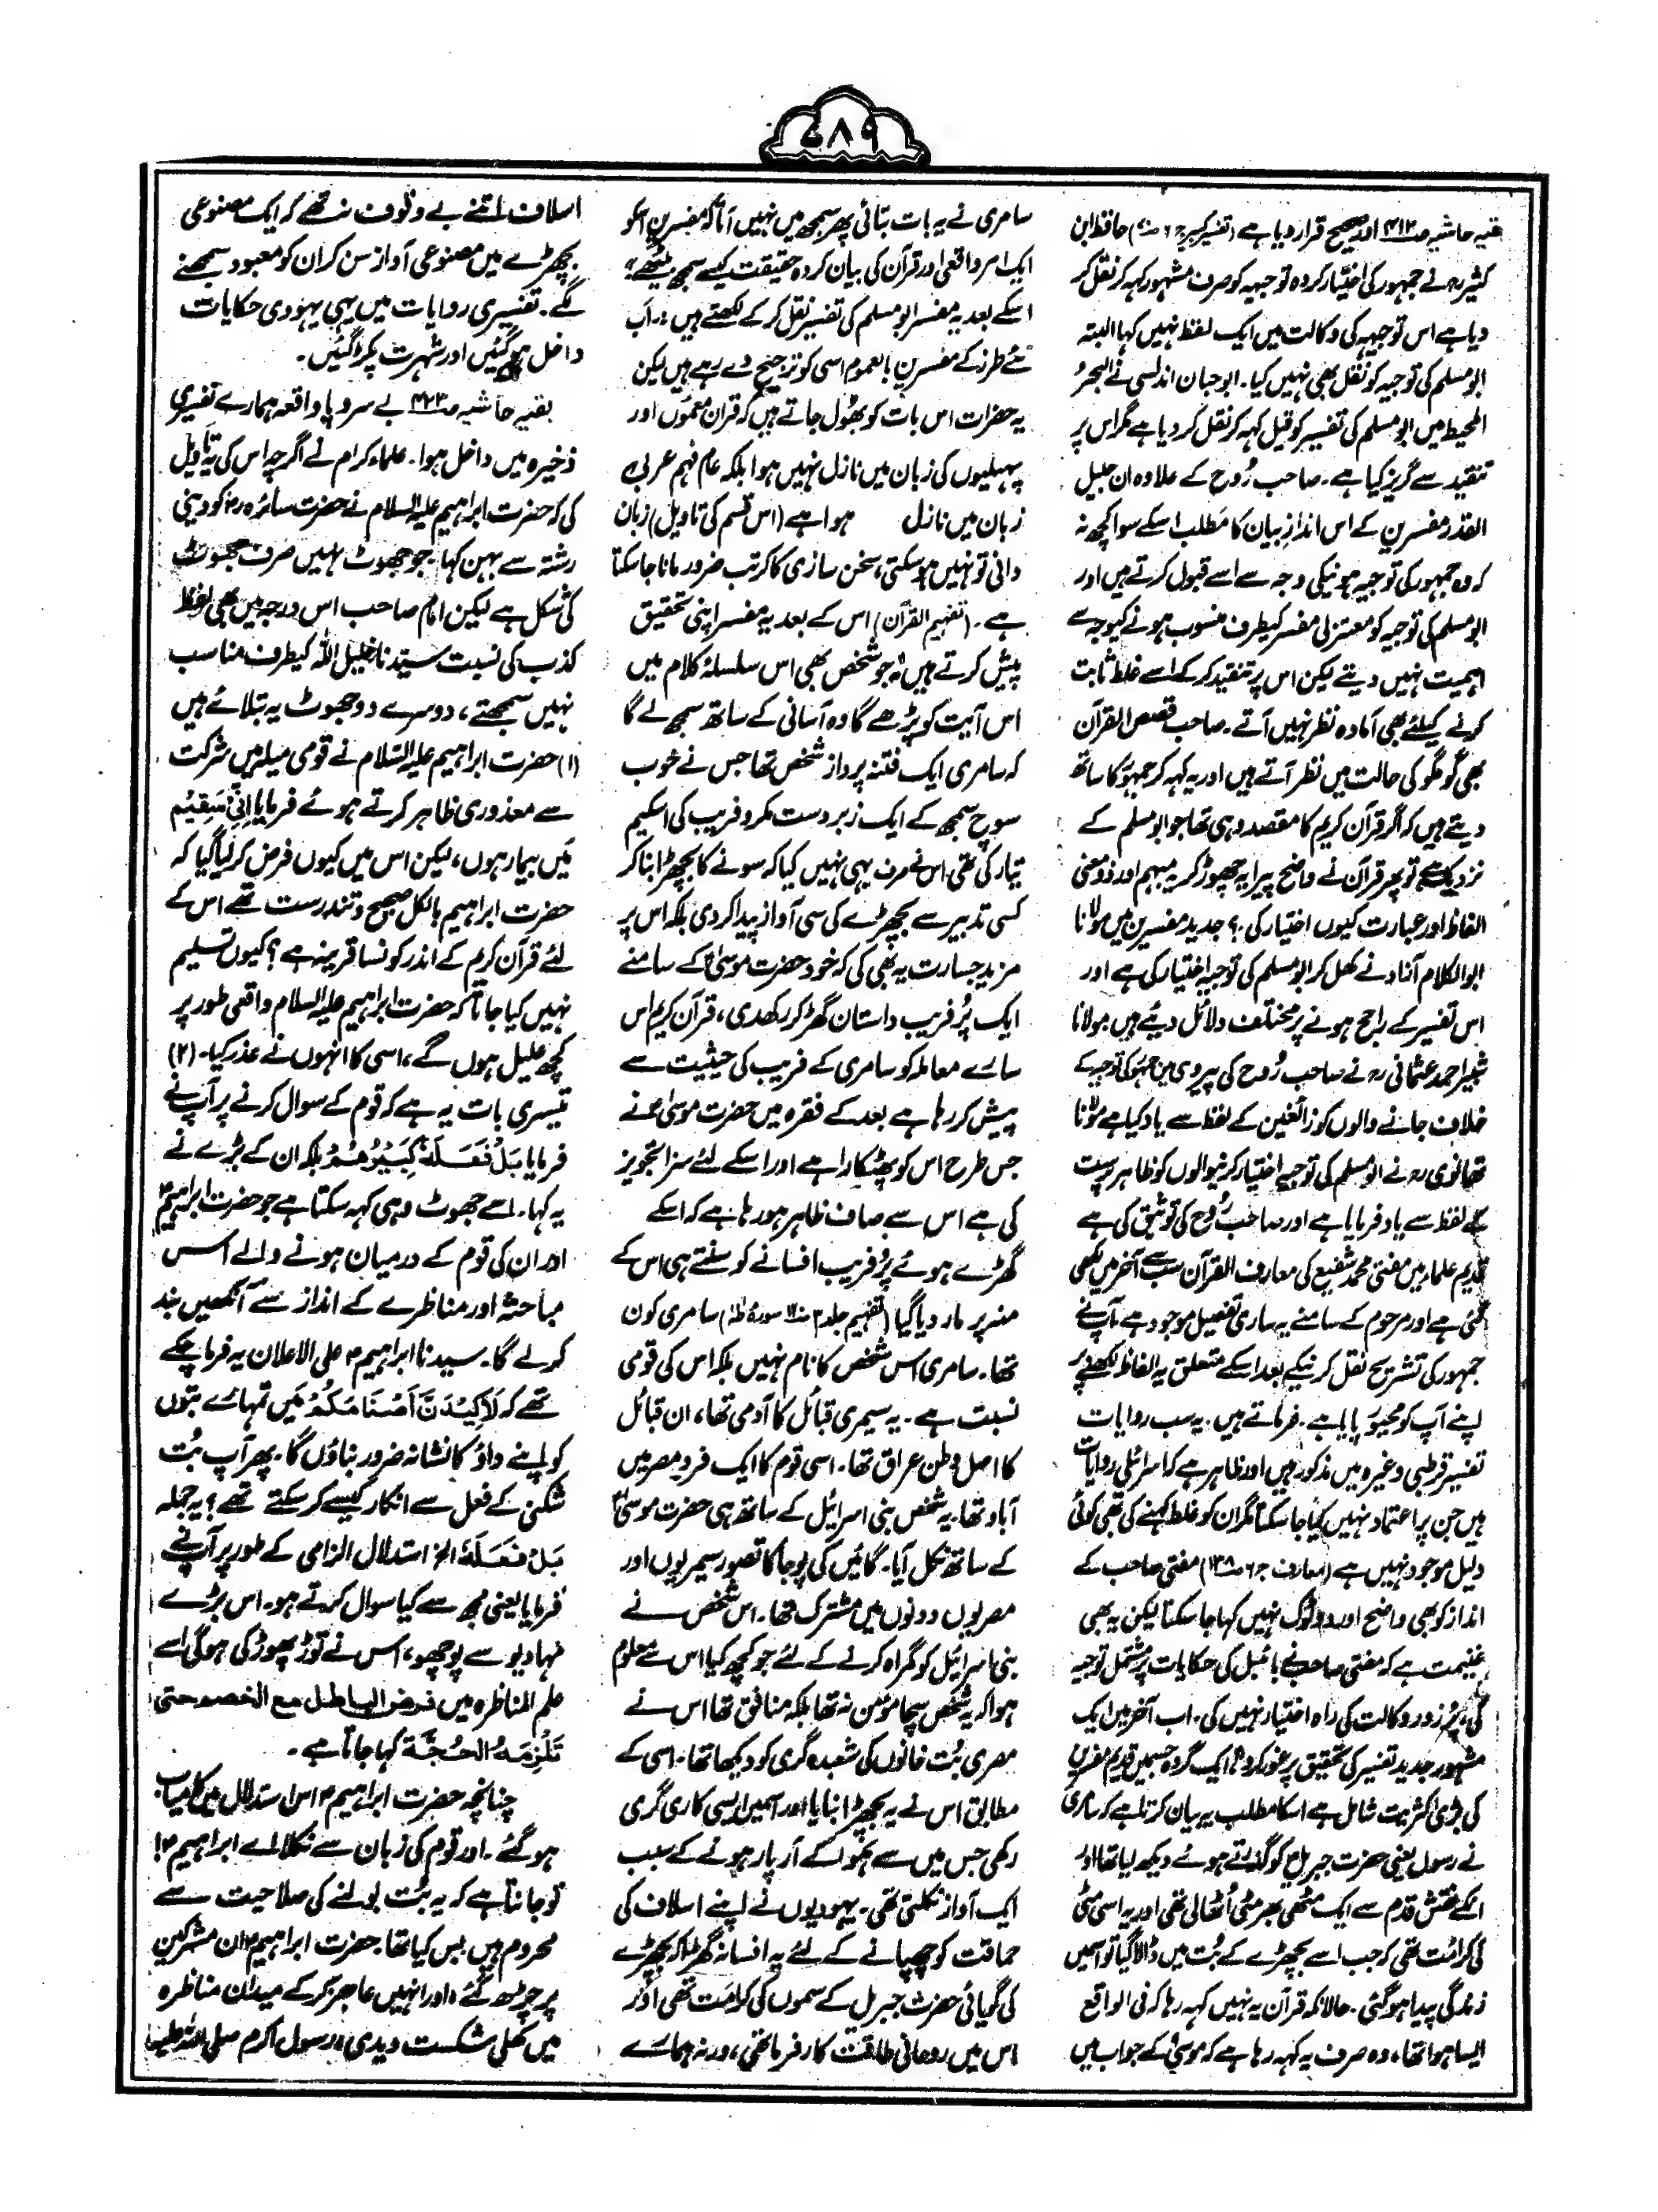 ۵۸۹
بقیہ حاشیہ ص۴۱۳ اور صحیح قرار دیا ہے (تفسیر کبیر ج۶) حافظ ابن
کثیرؒ نے جمہور کی اختیار کردہ توجیہ کو صرف مشہور کہہ کر نقل کر
دیا ہے اس توجیہہ کی وکالت میں ایک لفظ نہیں کہا البتہ
ابو مسلم کی توجیہ کو نقل بھی نہیں کیا۔ ابو حبان اندلسی نے البحر
المحیط میں ابو مسلم کی تفسیر کو قیل کہہ کر نقل کر دیا ہے مگر اس پر
تنقید سے گریز کیا ہے۔ صاحب رُوح کے علاوہ ان جلیل
القدر مفسرین کے اس اندازِ بیان کا مَطلب اسکے سوا کچھ نہ
کہ وہ جمہور کی توجیہ ہونیکی وجہ سے اسے قبول کرتے ہیں اور
ابو مسلم کی توجیہ کو معتزلی مفسر کیطرف منسوب ہونے کیوجہ سے
اہمیت نہیں دیتے لیکن اس پر تنقید کر کے اسے غلط ثابت
کرنے کیلئے بھی آمادہ نظر نہیں آتے۔ صاحب قصص القرآن
بھی گومگو کی حالت میں نظر آتے ہیں اور یہ کہہ کر جمہور کا ساتھ
دیتے ہیں کہ اگر قرآن کریم کا مقصد وہی تھا جو ابو مسلم کے
نزدیک ہے تو پھر قرآن نے واضح پیرایہ چھوڑ کر یہ مبہم اور ذو معنی
الفاظ اور عبارت کیوں اختیار کی؟ جدید مفسرین میں مولانا
ابو الکلام آزاد نے کھل کر ابو مسلم کی توجیہ اختیار کی ہے اور
اس تفسیر کے راجح ہونے پر مختلف دلائل دیئے ہیں مولانا
شبیر احمد عثمانی رہ نے صاحب رُوح کی پیروی میں جمہور کی توجیہ کے
خلاف جانے والوں کو زائغین کے لفظ سے یاد کیا ہے مولانا
تھانوی رہ نے ابو مسلم کی توجیہ اختیار کرنیوالوں کو ظاہر پرست
کے لفظ سے یاد فرمایا ہے اور صاحب رُوح کی توثیق کی ہے
قدیم علماء میں مفتی محمد شفیع کی معارف القرآن سب سے آخر میں لکھی
گئی ہے اور مرحوم کے سامنے یہ ساری تفصیل موجود ہے، آپ نے
جمہور کی تشریح نقل کرنیکے بعد اسکے متعلق یہ الفاظ لکھنے پر
اپنے آپ کو مجبور پایا ہے۔ فرماتے ہیں۔ یہ سب روایات
تفسیر قرطبی وغیرہ میں مذکور ہیں اور ظاہر ہے کہ اسرائیلی روایات
ہیں جن پر اعتماد نہیں کیا جا سکتا مگر ان کو غلط کہنے کی بھی کوئی
دلیل موجود نہیں ہے (معارف ج۶ ص۱۳۸) مفتی صاحب کے
انداز کو بھی واضح اور دو ٹوک نہیں کہا جا سکتا لیکن یہ بھی
غنیمت ہے کہ مفتی صاحب نے بائبل کی حکایات پر مشتمل توجیہ
کی پُر زور وکالت کی راہ اختیار نہیں کی۔ اب آخر میں ایک
مشہور جدید تفسیر کی تحقیق پر غور کرو۔ ایک گروہ جسمیں قدیم مفسرین
کی بڑی اکثریت شامل ہے اسکا مطلب یہ بیان کرتا ہے کہ سامری
نے رسول یعنی حضرت جبریلؑ کو گذرتے ہوئے دیکھ لیا تھا اور
انکے نقش قدم سے ایک مٹھی بھر مٹی اُٹھالی تھی اور یہ اسی مٹی
کی کرامت تھی کہ جب اسے بچھڑے کے بُت میں ڈالا گیا تو اسمیں
زندگی پیدا ہو گئی۔ حالانکہ قرآن یہ نہیں کہہ رہا کہ فی الواقع
ایسا ہوا تھا، وہ صرف یہ کہہ رہا ہے کہ موسیٰؑ کے جواب میں
سامری نے یہ بات بتائی پھر سمجھ میں نہیں آتا کہ مفسرین اسکو
ایک امر واقعی اور قرآن کی بیان کردہ حقیقت کیسے سمجھ بیٹھے"
اسکے بعد یہ مفسر ابو مسلم کی تفسیر نقل کر کے لکھتے ہیں: اَب
نئے طرز کے مفسرین بالعموم اسی کو ترجیح دے رہے ہیں لیکن
یہ حضرات اس بات کو بھُول جاتے ہیں کہ قرآن معموں اور
پہیلیوں کی زبان میں نازل نہیں ہوا بلکہ عام فہم عربی
زبان میں نازل ہوا ہے (اس قسم کی تاویل) زبان
دانی تو نہیں ہو سکتی، سخن سازی کا کرتب ضرور مانا جا سکتا
ہے۔ (تفہیم القرآن) اس کے بعد یہ مفسر اپنی تحقیق
پیش کرتے ہیں: جو شخص بھی اس سلسلۂ کلام میں
اس آیت کو پڑھے گا وہ آسانی کے ساتھ سمجھ لے گا
کہ سامری ایک فتنہ پرداز شخص تھا جس نے خوب
سوچ سمجھ کے ایک زبردست مکر و فریب کی اسکیم
تیار کی تھی اس نے صرف یہی نہیں کیا کہ سونے کا بچھڑا بنا کر
کسی تدبیر سے بچھڑے کی سی آواز پیدا کر دی بلکہ اس پر
مزید جسارت یہ بھی کی کہ خود حضرت موسیٰؑ کے سامنے
ایک پُر فریب داستان گھڑ کر رکھدی، قرآن کریم اس
سارے معاملہ کو سامری کے فریب کی حیثیت سے
پیش کر رہا ہے بعد کے فقرہ میں حضرت موسیٰؑ نے
جس طرح اس کو پھٹکارا ہے اور اسکے لئے سزا تجویز
کی ہے اس سے صاف ظاہر ہو رہا ہے کہ اسکے
گھڑے ہوئے پُر فریب افسانے کو سنتے ہی اس کے
منہ پر مار دیا گیا (تفہیم جلد۳ سورۂ طٰہٰ) سامری کون
تھا۔ سامری اس شخص کا نام نہیں بلکہ اس کی قومی
نسبت ہے۔ یہ سیمری قبائل کا آدمی تھا، ان قبائل
کا اصل وطن عراق تھا۔ اسی قوم کا ایک فرد مصر میں
آباد تھا۔ یہ شخص بنی اسرائیل کے ساتھ ہی حضرت موسیٰؑ
کے ساتھ نکل آیا۔ گائیں کی پوجا کا تصور سیمریوں اور
مصریوں دونوں میں مشترک تھا۔ اس شخص نے
بنی اسرائیل کو گمراہ کرنے کے لئے جو کچھ کیا اس سے معلوم
ہوا کہ یہ شخص سچا مؤمن نہ تھا بلکہ منافق تھا اس نے
مصری بُت خانوں کی شعبدہ گری کو دیکھا تھا۔ اسی کے
مطابق اس نے یہ بچھڑا بنایا اور اسمیں ایسی کاری گری
رکھی جس میں سے ہَوا کے آر پار ہونے کے سبب
ایک آواز نکلتی تھی۔ یہودیوں نے اپنے اسلاف کی
حماقت کو چھپانے کے لئے یہ افسانہ گھڑا کہ بچھڑے
کی گویائی حضرت جبریل کے سموں کی کرامت تھی اور
اس میں روحانی طاقت کار فرما تھی، ورنہ ہمارے
اسلاف اتنے بے وقوف نہ تھے کہ ایک مصنوعی
بچھڑے میں مصنوعی آواز سن کر ان کو معبود سمجھنے
لگے۔ تفسیری روایات میں یہی یہودی حکایات
داخل ہو گئیں اور شہرت پکڑ گئیں۔
بقیہ حاشیہ ص۴۲۳ بے سرو پا واقعہ ہمارے تفسیری
ذخیرہ میں داخل ہوا۔ علماء کرام نے اگرچہ اس کی یہ تاویل
کی کہ حضرت ابراہیم علیہ السلام نے حضرت سائرہ رض کو دینی
رشتہ سے بہن کہا۔ جو جھوٹ نہیں صرف جھوٹ
کی شکل ہے لیکن امام صاحب اس درجہ میں بھی لفظ
کذب کی نسبت سیّدنا خلیل اللہ کیطرف مناسب
نہیں سمجھتے، دوسرے دو جھوٹ یہ بتلائے ہیں
(۱) حضرت ابراہیم علیہ السّلام نے قومی میلہ میں شرکت
سے معذوری ظاہر کرتے ہوئے فرمایا اِنِّیْ سَقِیْم
میں بیمار ہوں، لیکن اس میں کیوں فرض کر لیا گیا کہ
حضرت ابراہیم بالکل صحیح و تندرست تھے اس کے
لئے قرآن کرم کے اندر کونسا قرینہ ہے؟ کیوں تسلیم
نہیں کیا جاتا کہ حضرت ابراہیم علیہ السلام واقعی طور پر
کچھ علیل ہوں گے، اسی کا انہوں نے عذر کیا۔ (۲)
تیسری بات یہ ہے کہ قوم کے سوال کرنے پر آپ نے
فرمایا بَلْ فَعَلَہٗ کَبِیْرُھُمْ بلکہ ان کے بڑے نے
یہ کہا۔ اسے جھوٹ وہی کہہ سکتا ہے جو حضرت ابراہیمؑ
اور ان کی قوم کے درمیان ہونے والے اس
مباحثہ اور مناظرے کے انداز سے آنکھیں بند
کر لے گا۔ سیدنا ابراہیمؑ علی الاعلان یہ فرما چکے
تھے کہ لَاَکِیْدَنَّ اَصْنَامَکُمْ میں تمہارے بتوں
کو اپنے داؤ کا نشانہ ضرور بناؤں گا۔ پھر آپ بُت
شکنی کے فعل سے انکار کیسے کر سکتے تھے؟ یہ جملہ
بَلْ فَعَلَہٗ الخ استدلال الزامی کے طور پر آپ نے
فرمایا یعنی مجھ سے کیا سوال کرتے ہو۔ اس بڑے
مہادیو سے پوچھو، اس نے توڑ پھوڑ کی ہوگی اسے
علم المناظرہ میں فرض الباطل مع الخصم حتی
تَلْزِمَہُ الْحُجَّۃ کہا جاتا ہے۔
چنانچہ حضرت ابراہیمؑ اس استدلال میں کامیاب
ہو گئے۔ اور قوم کی زبان سے نکلا اے ابراہیمؑ!
تو جانتا ہے کہ یہ بُت بولنے کی صلاحیت سے
محروم ہیں بس کیا تھا۔ حضرت ابراہیمؑ ان مشرکین
پر چڑھ گئے، اور انہیں عاجز کر کے میدان مناظرہ
میں کھلی شکست دیدی، رسول اکرم صلی اللہ علیہ